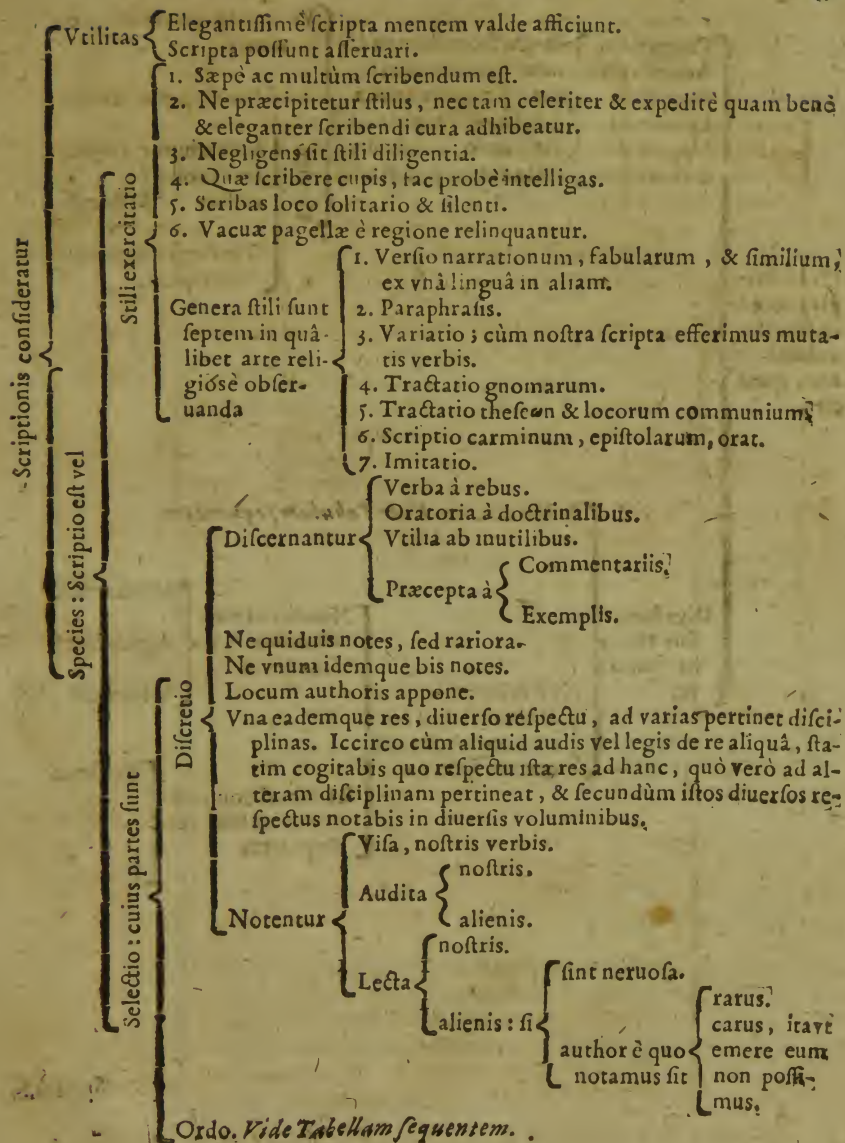 Scriptionis consideratur
Vtilitas
Elegantissimè scripta mentem valde afficiunt.
Scripta possunt asseruari.
Species : Scriptio est vel
Stili exercitatio
1. Sæpè ac multùm scribendum est.
2. Ne præcipitetur stilus, nec tam celeriter & expeditè quam benè
& eleganter scribendi cura adhibeatur.
3. Negligens sit stili diligentia.
4. Quæ scribere cupis, fac probè intelligas.
5. Scribas loco solitario & silenti.
6. Vacuæ pagellæ è regione relinquantur.
Genera stili sunt
septem in quâ-
libet arte reli-
giósè obser-
uanda
1. Versio narrationum, fabularum, & similium,
ex vnâ linguâ in aliam.
2. Paraphrasis.
3. Variatio ; cùm nostra scripta efferimus muta-
tis verbis.
4. Tractatio gnomarum.
5. Tractatio theseωn & locorum communium,
6. Scriptio carminum, epistolarum, orat.
7. Imitatio.
Selectio : cuius partes sunt
Discretio
Discernantur
Verba à rebus.
Oratoria à doctrinalibus.
Vtilia ab inutilibus.
Præcepta à
Commentariis.
Exemplis.
Ne quiduis notes, sed rariora.
Ne vnum idemque bis notes.
Locum authoris appone.
Vna eademque res, diuerso réspectu, ad varias pertinet disci-
plinas. Iccirco cùm aliquid audis vel legis de re aliquâ, sta-
tim cogitabis quo respectu ista res ad hanc, quò verò ad al-
teram disciplinam pertineat, & secundùm istos diuersos re-
spectus notabis in diuersis voluminibus.
Notentur
Visa, nostris verbis.
Audita
nostris.
alienis.
Lecta
nostris.
alienis : si
sint neruosa.
author è quo
notamus sit
rarus.
carus, itavt
emere eum
non possi-
mus.
Ordo. Vide Tabellam sequentem.